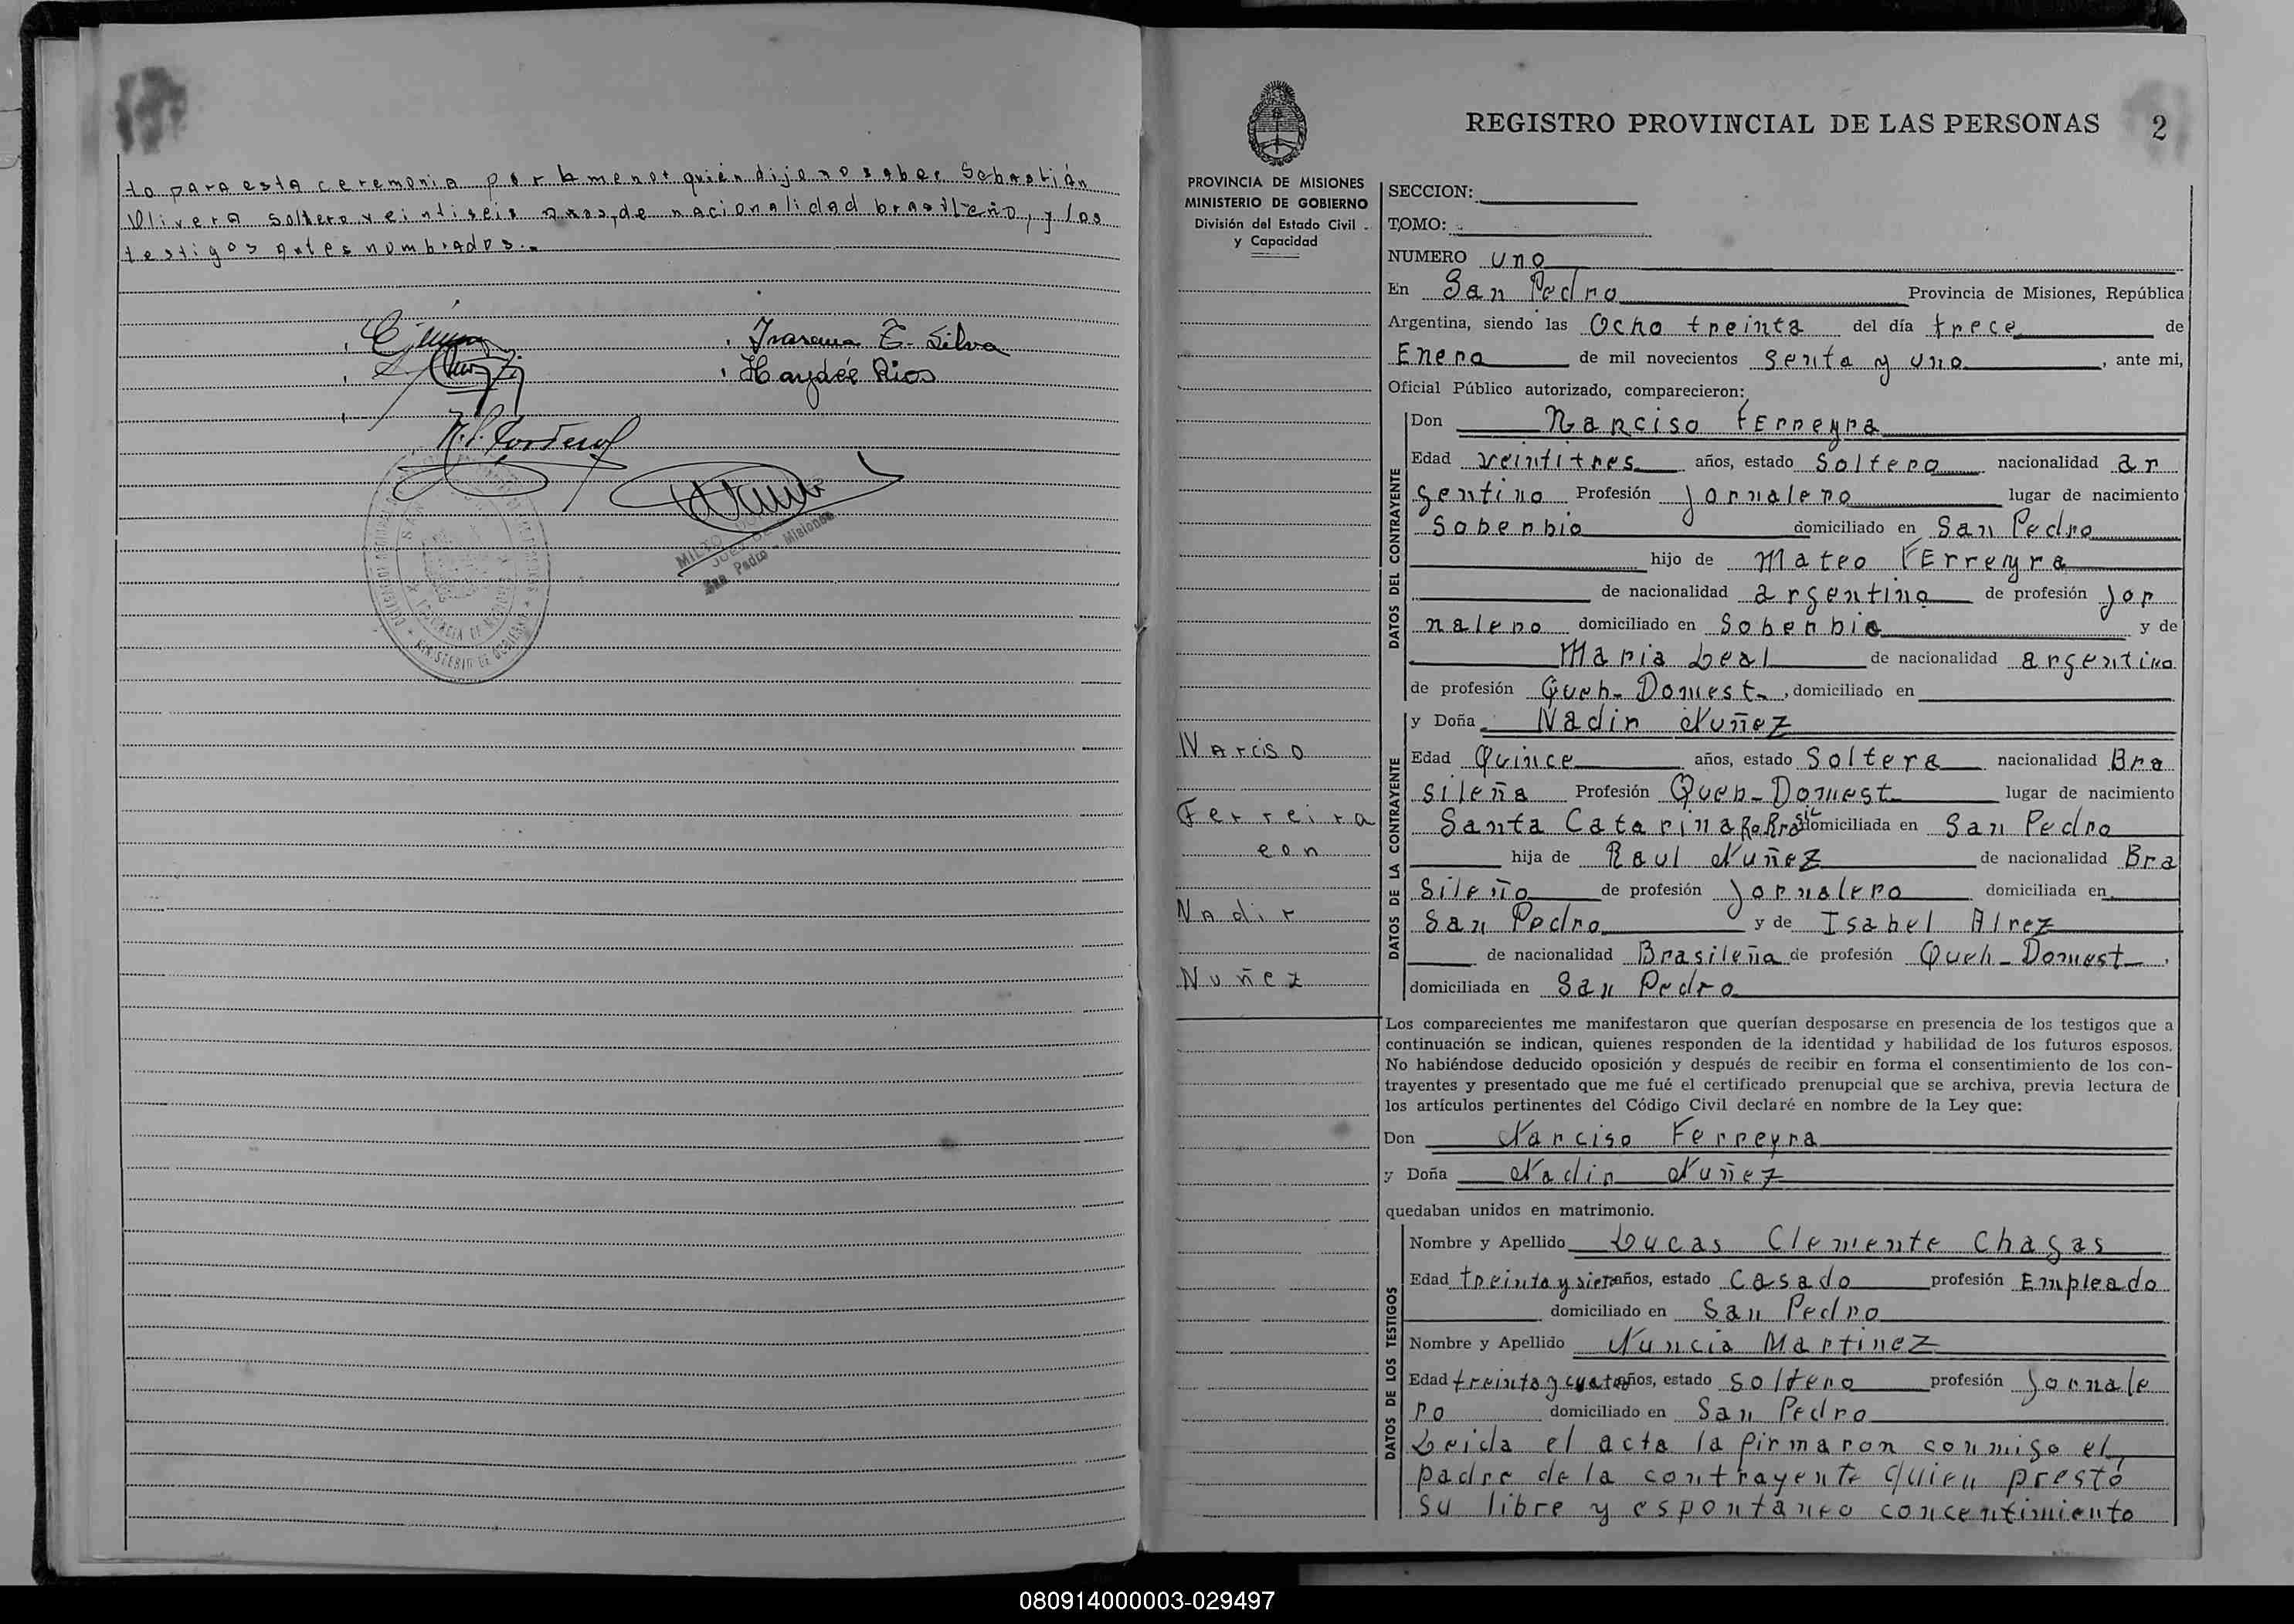 to para esta ceremonia por la menor quién dijo no saber Sebastián
Olivera soltero veintiseis años, de nacionalidad brasileño, y los
testigos antes nombrados.-
Irasema E. Silva
Haydée Rios
San Pedro - Misiones
REGISTRO PROVINCIAL DE LAS PERSONAS 2
PROVINCIA DE MISIONES
MINISTERIO DE GOBIERNO
División del Estado Civil
y Capacidad
SECCION:
TOMO:
NUMERO uno
En San Pedro Provincia de Misiones, República
Argentina, siendo las Ocho treinta del día trece de
Enero de mil novecientos senta y uno, ante mi,
Oficial Público autorizado, comparecieron:
DATOS DEL CONTRAYENTE
Don Narciso Ferreyra
Edad veintitres años, estado Soltero nacionalidad ar
gentino Profesión Jornalero lugar de nacimiento
Soberbio domiciliado en San Pedro
hijo de Mateo Ferreyra
de nacionalidad argentina de profesión Jor
nalero domiciliado en Soberbio y de
Maria Leal de nacionalidad argentina
de profesión Queh-Domest-, domiciliado en
DATOS DE LA CONTRAYENTE
y Doña Nadir Nuñez
Edad Quince años, estado Soltera nacionalidad Bra
sileña Profesión Queh-Domest lugar de nacimiento
Santa Catarina domiciliada en San Pedro
hija de Raul Nuñez de nacionalidad Bra
sileño de profesión Jornalero domiciliada en
San Pedro y de Isabel Alrez
de nacionalidad Brasileña de profesión Queh-Domest-,
domiciliada en San Pedro
Narciso
Ferreira
con
Nadir
Nuñez
Los comparecientes me manifestaron que querían desposarse en presencia de los testigos que a
continuación se indican, quienes responden de la identidad y habilidad de los futuros esposos.
No habiéndose deducido oposición y después de recibir en forma el consentimiento de los con-
trayentes y presentado que me fué el certificado prenupcial que se archiva, previa lectura de
los artículos pertinentes del Código Civil declaré en nombre de la Ley que:
Don Narciso Ferreyra
y Doña Nadir Nuñez
quedaban unidos en matrimonio.
DATOS DE LOS TESTIGOS
Nombre y Apellido Lucas Clemente Chagas
Edad treinta y siete años, estado Casado profesión Empleado
domiciliado en San Pedro
Nombre y Apellido Nuncia Martinez
Edad treinta y cuatro años, estado soltero profesión Jornale
ro domiciliado en San Pedro
Leida el acta la firmaron conmigo el
padre de la contrayente quien prestó
su libre y espontáneo concentimiento
080914000003-029497